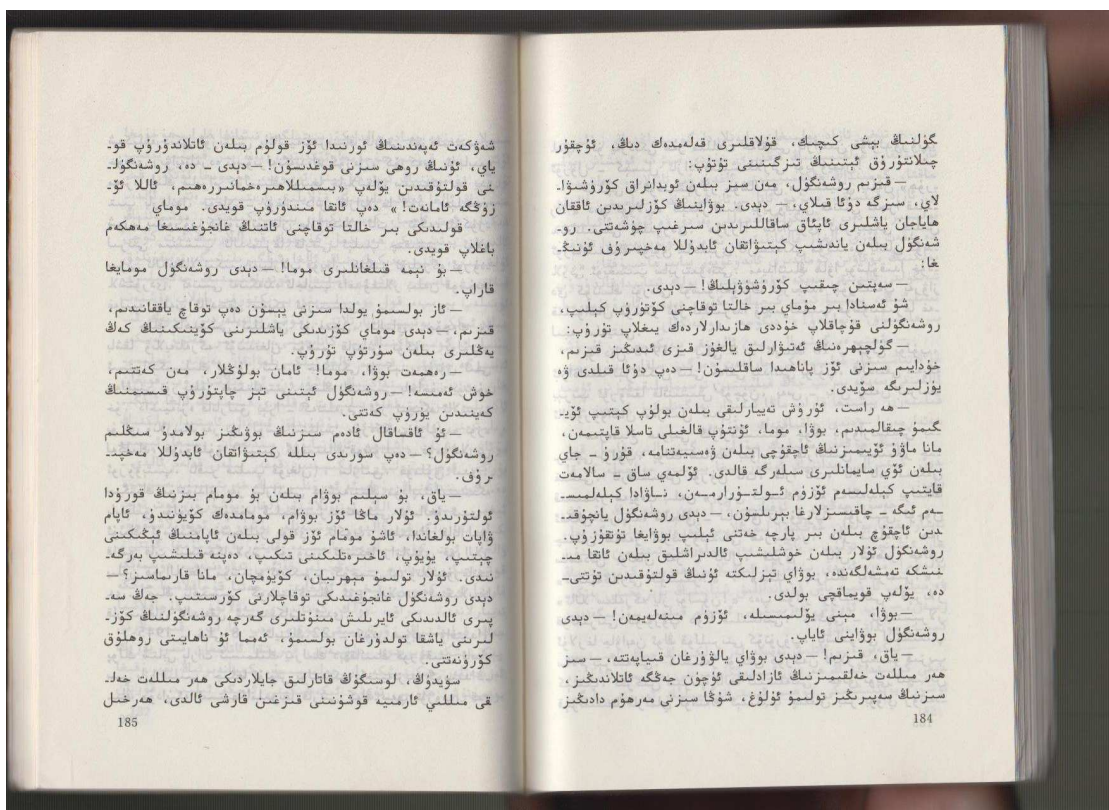 گۈلنىڭ بېشى كىچىك، قۇلاقلىرى قەلەمدەك دىڭ، ئۇچقۇر
چىلانتۇرۇق ئېتىنىڭ تىزگىنىنى تۇتۇپ:
— قىزىم روشەنگۈل، مەن سىز بىلەن ئوبدانراق كۆرۈشىۋا-
لاي، سىزگە دۇئا قىلاي، — دېدى. بوۋاينىڭ كۆزلىرىدىن ئاققان
ھاياجان ياشلىرى ئاپئاق ساقاللىرىدىن سىرغىپ چۈشەتتى. رو-
شەنگۈل بىلەن ياندىشىپ كېتىۋاتقان ئابدۇللا مەخپىرۇف ئۇنىڭ-
غا:
— سەپتىن چىقىپ كۆرۈشۈۋېلىڭ! — دېدى.
شۇ ئەسنادا بىر موماي بىر خالتا توقاچنى كۆتۈرۈپ كېلىپ،
روشەنگۈلنى قۇچاقلاپ خۇددى ھازىدارلاردەك يىغلاپ تۇرۇپ:
— گۈلچېھرەنىڭ ئەتىۋارلىق يالغۇز قىزى ئىدىڭىز قىزىم،
خۇدايىم سىزنى ئۆز پاناھىدا ساقلىسۇن! — دەپ دۇئا قىلدى ۋە
يۈزلىرىگە سۆيدى.
— ھە راست، ئۇرۇش تەييارلىقى بىلەن بولۇپ كېتىپ ئۆي-
گىمۇ چىقالمىدىم، بوۋا، موما، ئۇنتۇپ قالغىلى تاسلا قاپتىمەن،
مانا ماۋۇ ئۆيىمىزنىڭ ئاچقۇچى بىلەن ۋەسىيەتنامە، قورۇ - جاي
بىلەن ئۆي سايمانلىرى سىلەرگە قالدى. ئۆلمەي ساق - سالامەت
قايتىپ كېلەلىسەم ئۆزۈم ئـولتـۇرارمـەن، نـاۋادا كېلەلمىسـ
ـەم ئىگە - چاقىسىزلارغا بېرىلسۇن، — دېدى روشەنگۈل يانچۇقى-
دىن ئاچقۇچ بىلەن بىر پارچە خەتنى ئېلىپ بوۋايغا تۇتقۇزۇپ.
روشەنگۈل ئۇلار بىلەن خوشلىشىپ ئالدىراشلىق بىلەن ئاتقا مى-
نىشكە تەمشەلگەندە، بوۋاي تېزلىكتە ئۇنىڭ قولتۇقىدىن تۇتتى-
دە، يۆلەپ قويماقچى بولدى.
— بوۋا، مېنى يۆلىمىسىلە، ئۆزۈم مىنەلەيمەن! — دېدى
روشەنگۈل بوۋاينى ئاياپ.
— ياق، قىزىم! — دېدى بوۋاي يالۋۇرغان قىياپەتتە، — سىز
ھەر مىللەت خەلقىمىزنىڭ ئازادلىقى ئۈچۈن جەڭگە ئاتلاندىڭىز،
سىزنىڭ سەپىرىڭىز تولىمۇ ئۇلۇغ، شۇڭا سىزنى مەرھۇم دادىڭىز
184
شەۋكەت ئەپەندىنىڭ ئورنىدا ئۆز قولۇم بىلەن ئاتلاندۇرۇپ قو-
ياي، ئۇنىڭ روھى سىزنى قوغدىسۇن! — دېدى - دە، روشەنگۈل-
نى قولتۇقىدىن يۆلەپ «بىسمىللاھىرەخمانىررەھىم، ئاللا ئۆ-
زۈڭگە ئامانەت!» دەپ ئاتقا مىندۈرۈپ قويدى. موماي
قولىدىكى بىر خالتا توقاچنى ئاتنىڭ غانجۇغىسىغا مەھكەم
باغلاپ قويدى.
— بۇ نېمە قىلغانلىرى موما! — دېدى روشەنگۈل مومايغا
قاراپ.
— ئاز بولسىمۇ يولدا سىزنى يېسۇن دەپ توقاچ ياققانىدىم،
قىزىم، — دېدى موماي كۆزىدىكى ياشلىرىنى كۆينىكىنىڭ كەڭ
يەڭلىرى بىلەن سۈرتۈپ تۇرۇپ.
— رەھمەت بوۋا، موما! ئامان بولۇڭلار، مەن كەتتىم،
خوش ئەمىسە! — روشەنگۈل ئېتىنى تېز چاپتۇرۇپ قىسىمنىڭ
كەينىدىن يۈرۈپ كەتتى.
— ئۇ ئاقساقال ئادەم سىزنىڭ بوۋىڭىز بولامدۇ سىڭلىم
روشەنگۈل؟ — دەپ سورىدى بىللە كېتىۋاتقان ئابدۇللا مەخپى-
رۇف.
— ياق، بۇ سېلىم بوۋام بىلەن بۇ مومام بىزنىڭ قورۇدا
ئولتۇرىدۇ. ئۇلار ماڭا ئۆز بوۋام، مومامدەك كۆيۈنىدۇ، ئاپام
ۋاپات بولغاندا، ئاشۇ مومام ئۆز قولى بىلەن ئاپامنىڭ ئېڭىكىنى
چېتىپ، يۇيۇپ، ئاخىرەتلىكىنى تىكىپ، دەپنە قىلىشىپ بەرگە-
نىدى. ئۇلار تولىمۇ مېھرىبان، كۆيۈمچان، مانا قارىماسىز؟ —
دېدى روشەنگۈل غانجۇغىدىكى توقاچلارنى كۆرسىتىپ. جەڭ سە-
پىرى ئالدىدىكى ئايرىلىش مىنۇتلىرى گەرچە روشەنگۈلنىڭ كۆز-
لىرىنى ياشقا تولدۇرغان بولسىمۇ، ئەمما ئۇ ناھايىتى روھلۇق
كۆرۈنەتتى.
سۈيدۈڭ، لوسىگۇڭ قاتارلىق جايلاردىكى ھەر مىللەت خەل-
قى مىللىي ئارمىيە قوشۇنىنى قىزغىن قارشى ئالدى، ھەرخىل
185